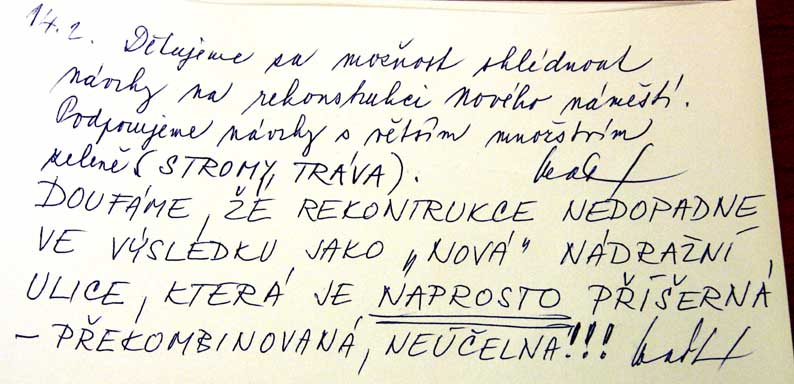 14.2. Děkujeme za možnost shlédnout
návrhy na rekonstrukci nového náměstí.
Podporujeme návrhy s větším množstvím
zeleně (STROMY, TRÁVA).
DOUFÁME, ŽE REKONTRUKCE NEDOPADNE
VE VÝSLEDKU JAKO „NOVÁ" NÁDRAŽNÍ
ULICE, KTERÁ JE NAPROSTO PŘÍŠERNÁ
– PŘEKOMBINOVANÁ, NEÚČELNA!!!